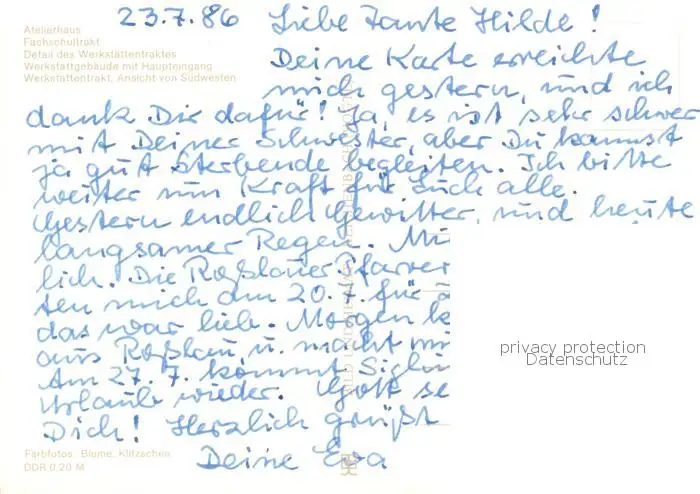 23.7.86 Liebe Tante Hilde!
Atelierhaus
Fachschultrakt
Detail des Werkstättentraktes
Werkstattgebäude mit Haupteingang
Werkstättentrakt, Ansicht von Südwesten
Deine Karte erreichte
mich gestern, und ich
dank Dir dafür! Ja, es ist sehr schwer
mit Deiner Schwester, aber Du kannst
ja gut Sterbende begleiten. Ich bitte
weiter um Kraft für Euch alle.
Gestern endlich Gewitter, und heute
langsamer Regen. Mi
lich. Die Roßlauer Pfarrer
ten mich am 20.7. für
das war lieb. Morgen k
aus Roßlau, u. macht mi
Am 27.7. kommt
Urlaub wieder. Gott se
Dich! Herzlich grüßt
Deine Eva
privacy protection
Datenschutz
Farbfotos: Blume, Klitzschen
DDR 0,20 M